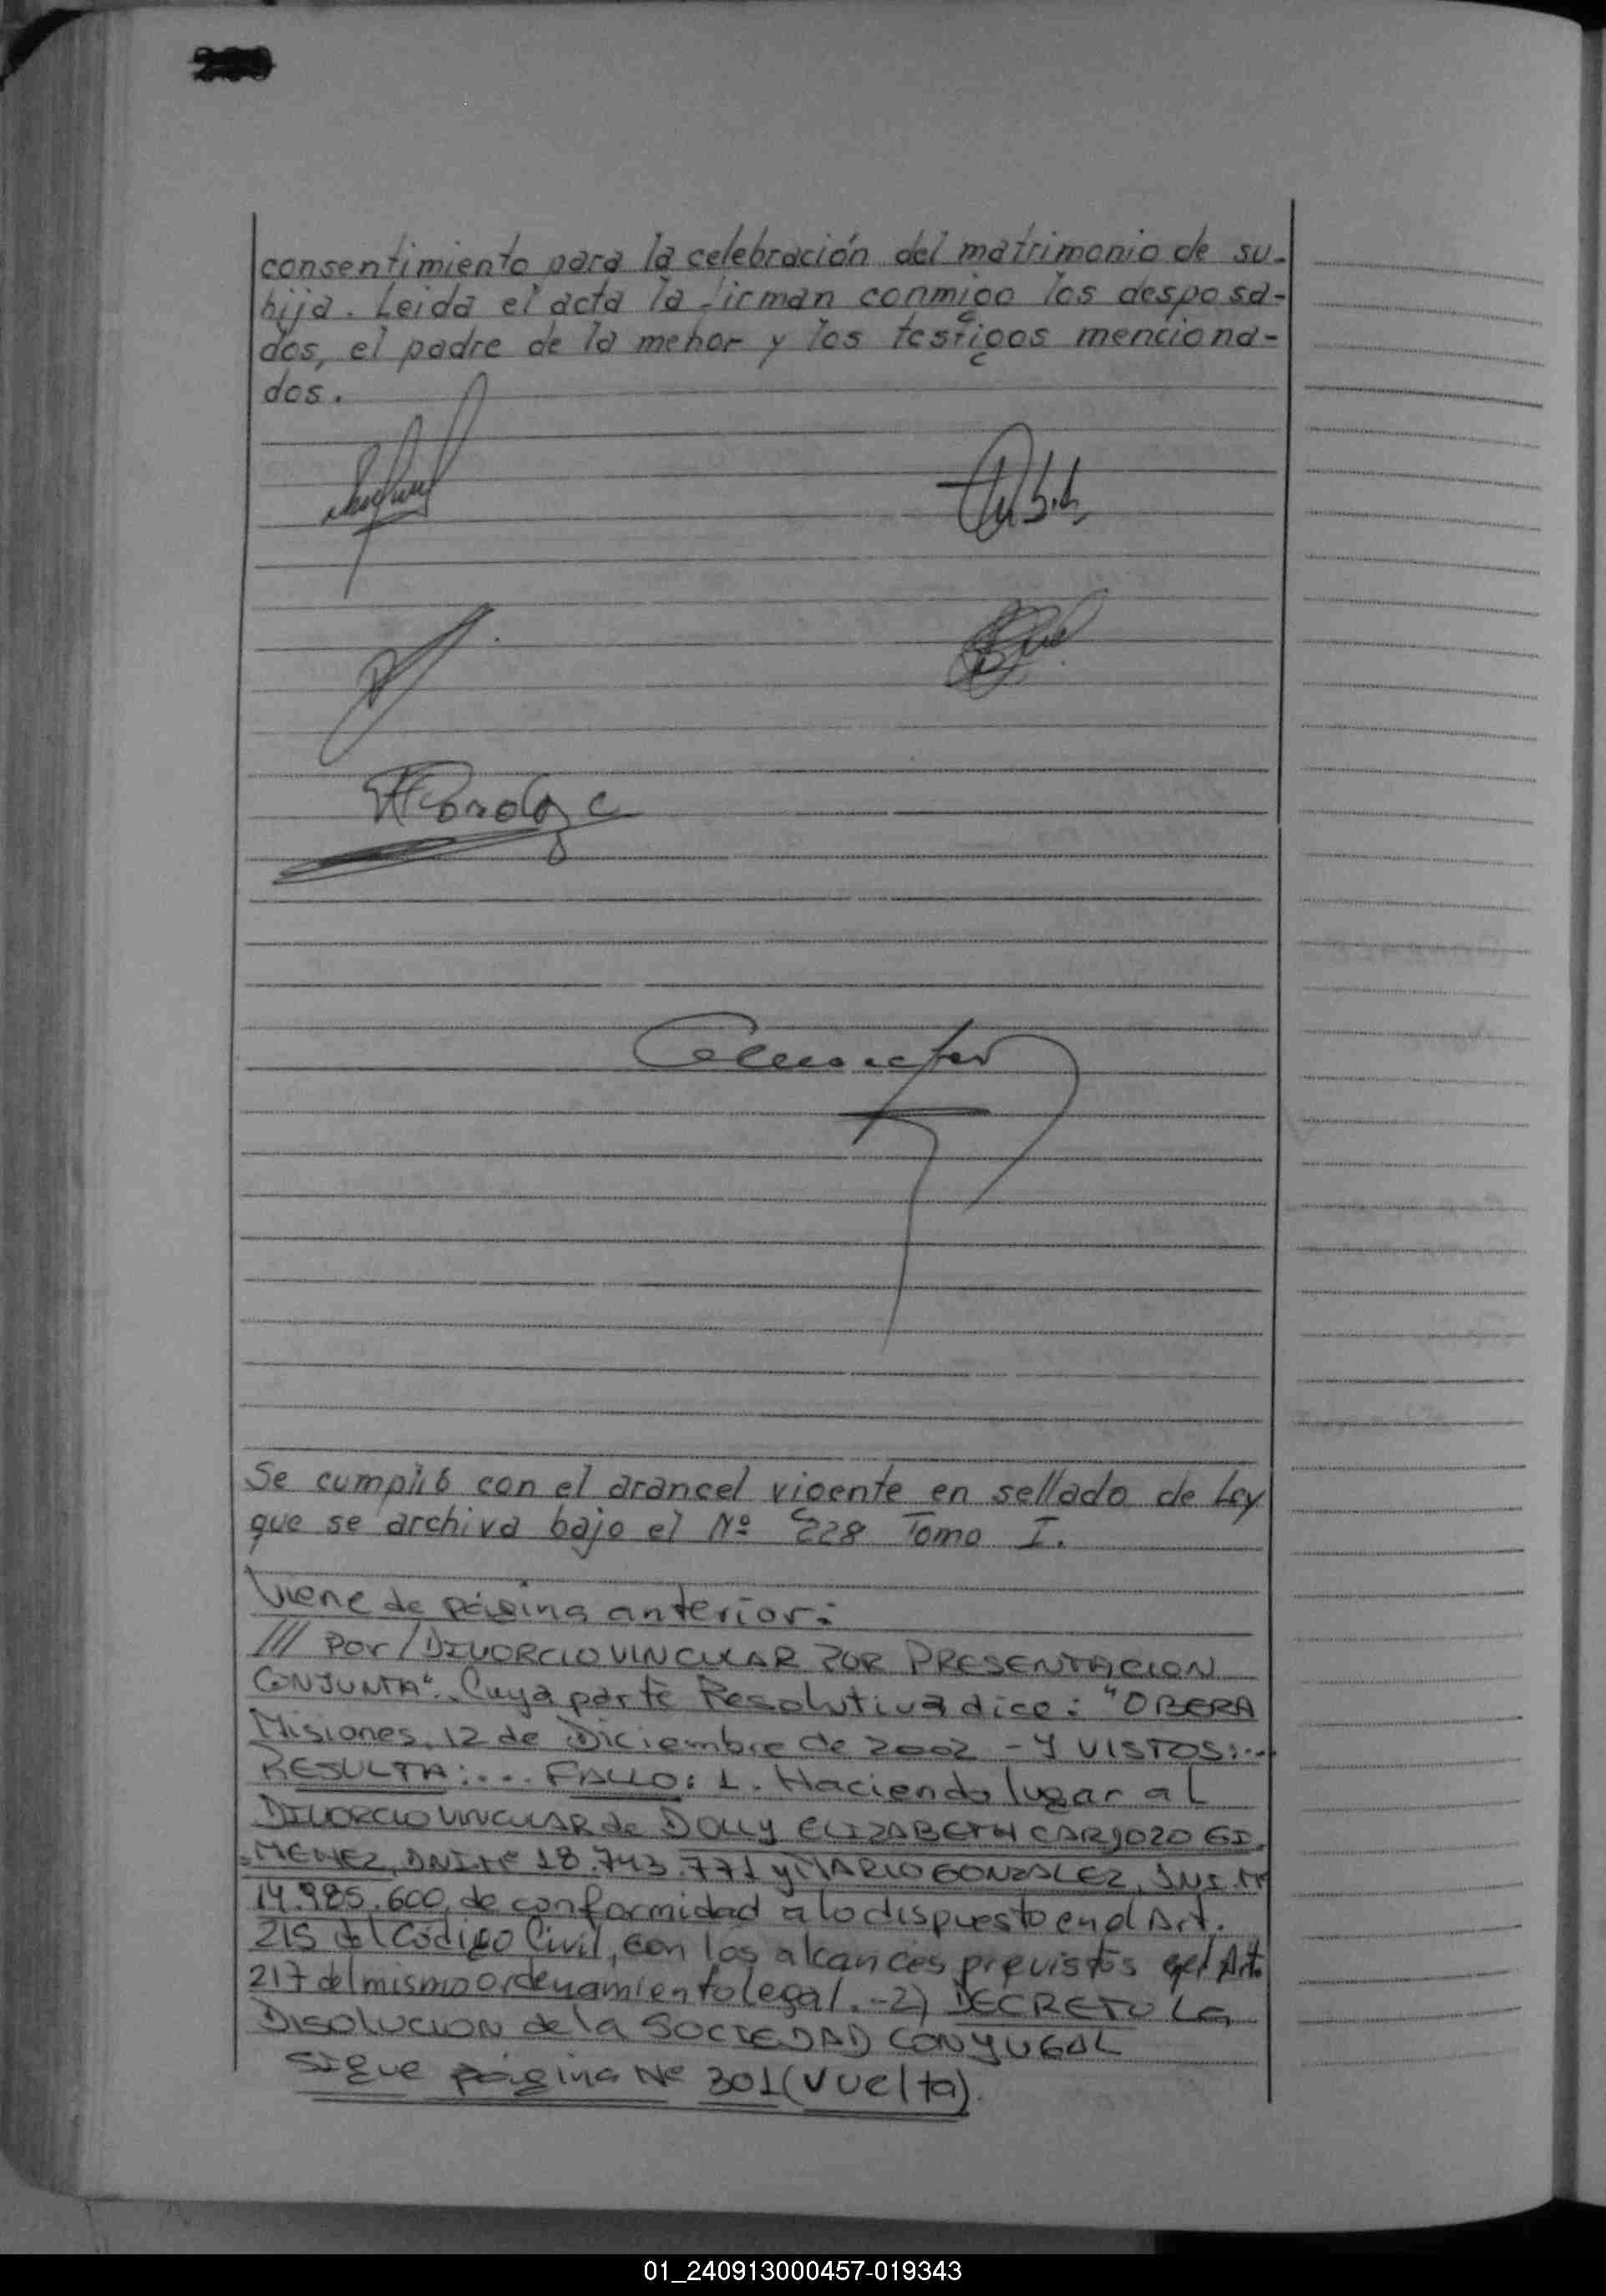 consentimiento para la celebración del matrimonio de su-
hija. Leida el acta la firman conmigo los desposa-
dos, el padre de la menor y los testigos menciona-
dos.
Se cumplió con el arancel vigente en sellado de Ley
que se archiva bajo el Nº 228 Tomo I.
Viene de página anterior:
/// Por / DIVORCIO VINCULAR POR PRESENTACION
CONJUNTA". Cuya parte Resolutiva dice: "OBERA
Misiones, 12 de Diciembre de 2002 - Y VISTOS:...
RESULTA:... FALLO: 1. Haciendo lugar al
DIVORCIO VINCULAR de DOLLY ELIZABETH CARDOZO GI-
MENEZ, DNI Nº 18.743.771 y MARIO GONZALEZ, DNI. Nº
14.985.600, de conformidad a lo dispuesto en el Art.
215 del Código Civil, con los alcances previstos en el Art.
217 del mismo ordenamiento legal. -2) DECRETO LA
DISOLUCION de la SOCIEDAD CONYUGAL
Sigue página Nº 301 (Vuelta).
01_240913000457-019343